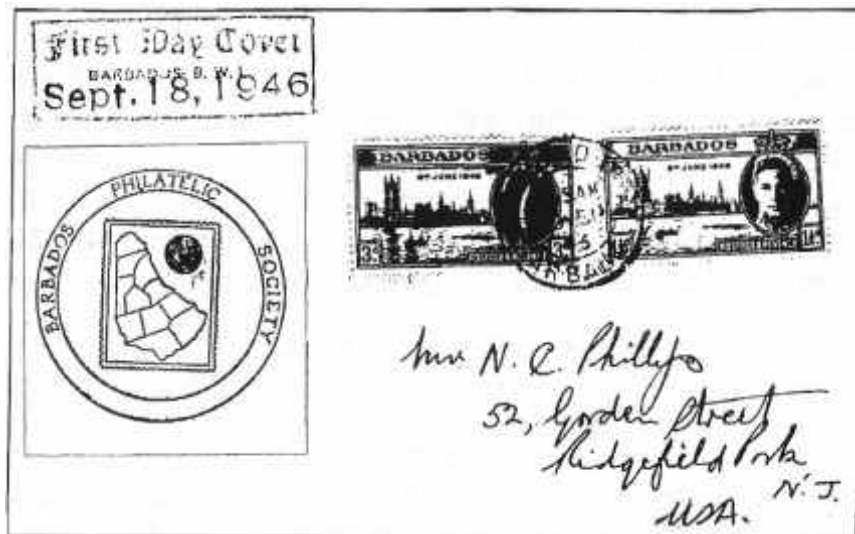 First Day Cover
BARBADOS B. W. I.
Sept. 18, 1946
BARBADOS PHILATELIC SOCIETY
BARBADOS
8TH JUNE 1946
3D
BARBADOS
8TH JUNE 1946
N. C. Phillips
52, Gorden Street
Ridgefield Park
N. J.
USA.